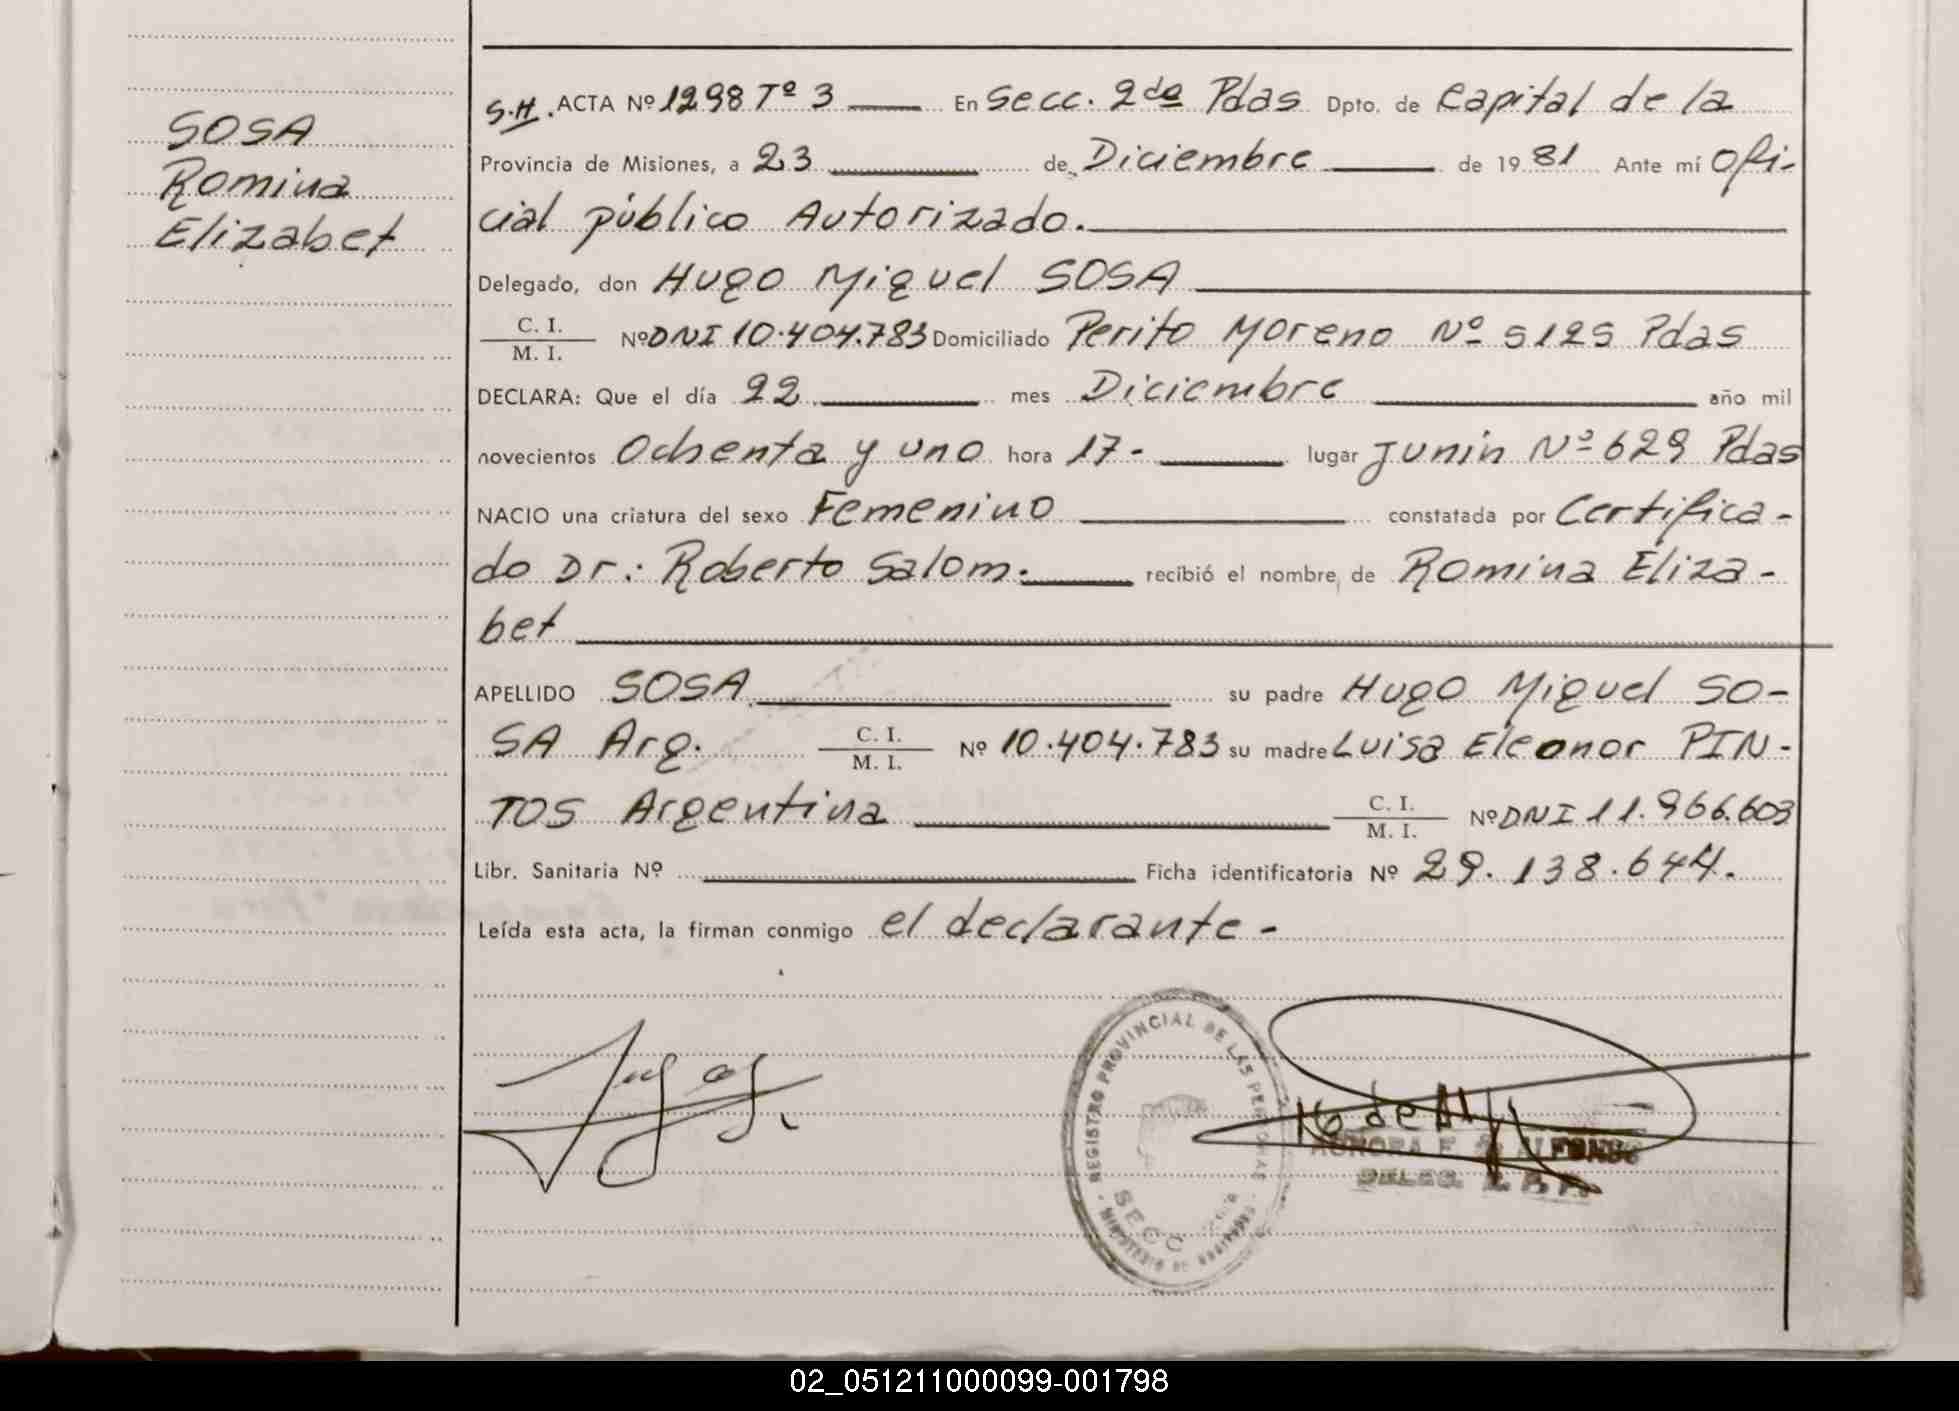 SOSA
Romina
Elizabet
S.H. ACTA Nº 1298 Tº 3 En Secc. 2da Pdas Dpto. de Capital de la
Provincia de Misiones, a 23 de Diciembre de 1981 Ante mí Ofi-
cial público Autorizado.
Delegado, don Hugo Miguel SOSA
C. I.
M. I. Nº DNI 10.404.783 Domiciliado Perito Moreno Nº 5125 Pdas
DECLARA: Que el día 22 mes Diciembre año mil
novecientos Ochenta y uno hora 17- lugar Junin Nº 629 Pdas
NACIO una criatura del sexo Femenino constatada por Certifica-
do Dr.: Roberto Salom. recibió el nombre de Romina Eliza-
bet
APELLIDO SOSA su padre Hugo Miguel SO-
SA Arg. C. I.
M. I. Nº 10.404.783 su madre Luisa Eleonor PIN-
TOS Argentina C. I.
M. I. Nº DNI 11.966.603
Libr. Sanitaria Nº Ficha identificatoria Nº 29.138.644.
Leída esta acta, la firman conmigo el declarante-
REGISTRO PROVINCIAL DE LAS PERSONAS
SECC
MINISTERIO DE
DELEG. R. P. P.
02_051211000099-001798